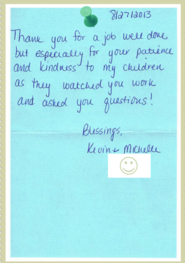 8/27/2013
Thank you for a job well done
but especially for your patience
and kindness to my children
as they watched you work
and asked you questions!
Blessings,
Kevin + Michelle